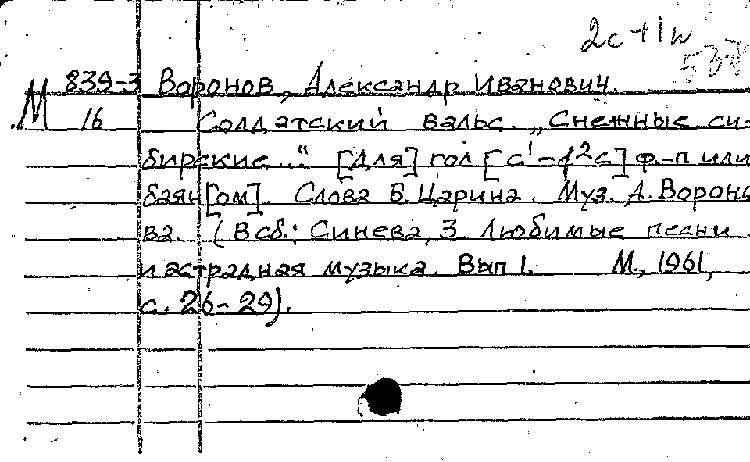 2с+1н
538
М 839-3 Воронов, Александр Иванович.
16 Солдатский вальс. „Снежные си-
бирские..." [Для] гол [с¹-f²с] ф-п или
баян[ом]. Слова Б. Царина. Муз. А. Вороно
ва. (В сб.: Синева, 3. Любимые песни
и эстрадная музыка. Вып 1. М., 1961,
с. 26-29).